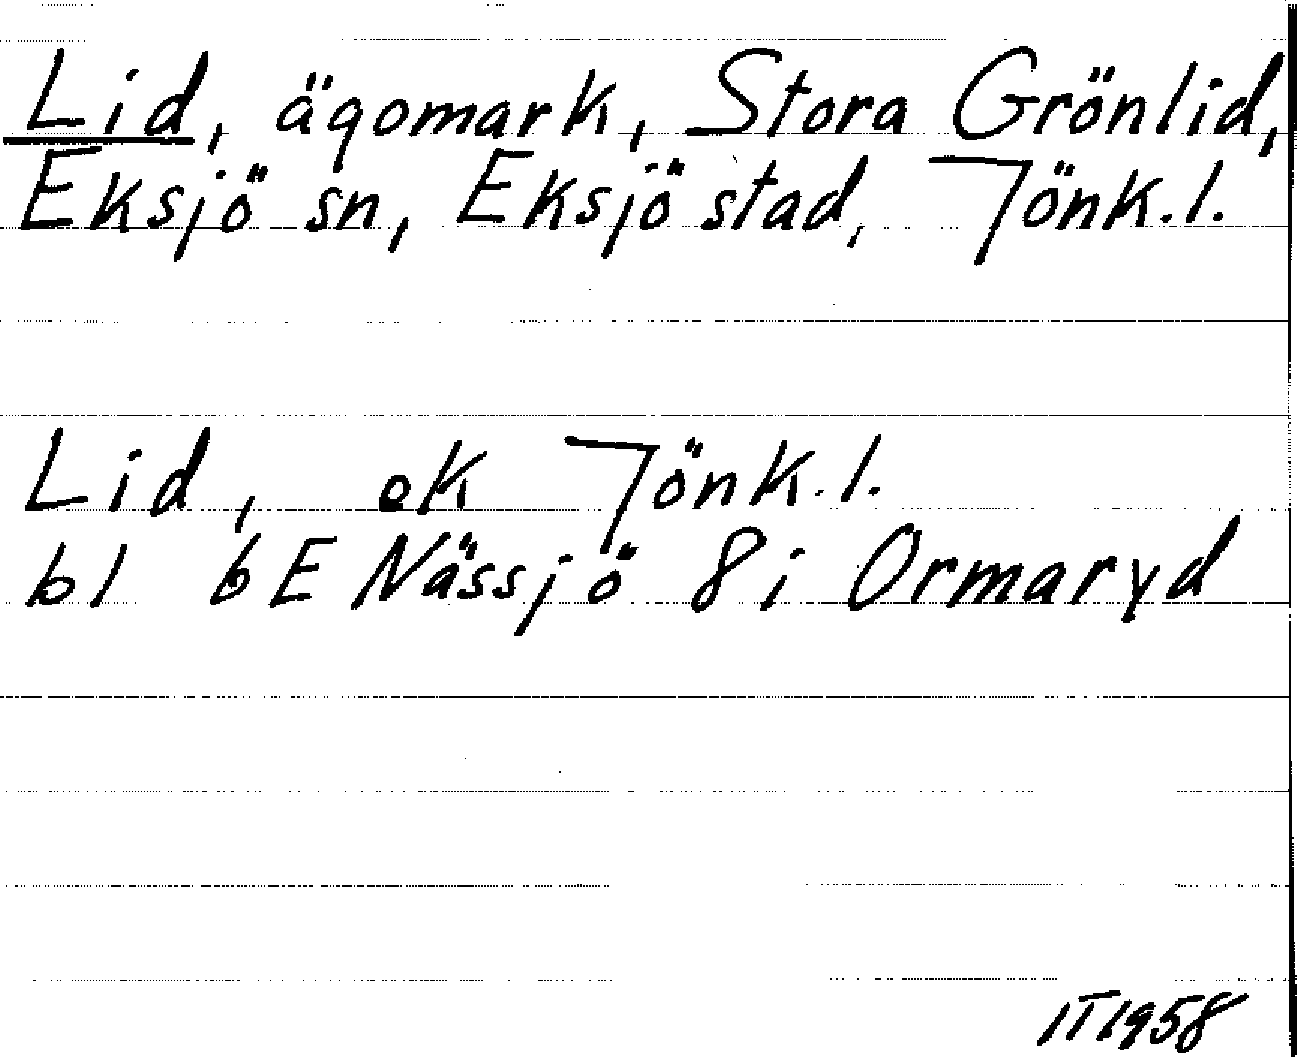 Lid, ägomark, Stora Grönlid,
Eksjö sn, Eksjö stad, Jönk.l.
Lid, ek Jönk.l.
bl 6E Nässjö 8i Ormaryd
IT1958